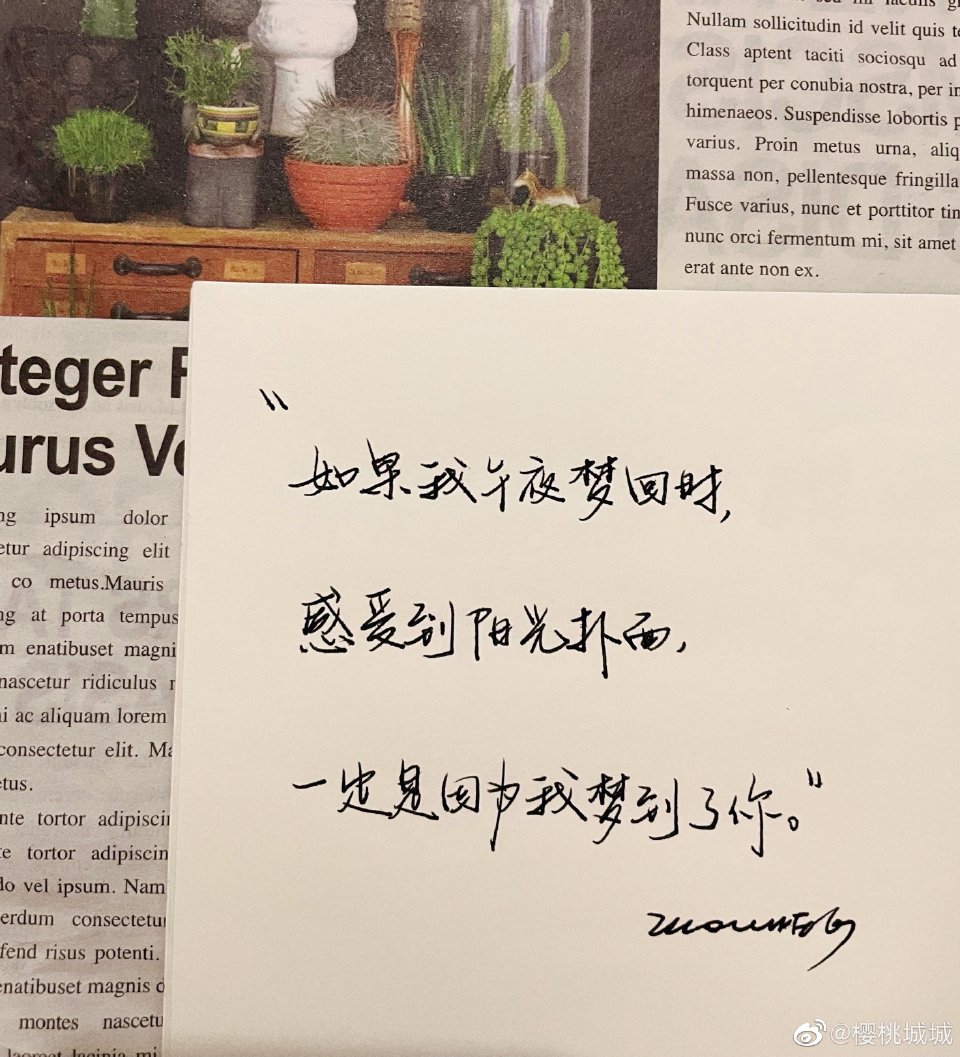 Nullam sollicitudin id velit quis
Class aptent taciti sociosqu ad
torquent per conubia nostra, per
himenaeos. Suspendisse lobortis
varius. Proin metus urna,
massa non, pellentesque fringilla
Fusce varius, nunc et porttitor
nunc orci fermentum mi, sit amet
erat ante non ex.
teger
urus
"
如果我午夜梦回时,
感受到阳光扑面,
一定是因为我梦到了你。"
ng ipsum dolor
etur adipiscing elit
co metus.Mauris
ng at porta tempus
m enatibuset magni
nascetur ridiculus
ni ac aliquam lorem
consectetur elit.
etus.
nte tortor adipiscin
te tortor adipiscin
do vel ipsum. Nam
erdum consectetu
fend risus potenti.
enatibuset magnis
montes nascetu
@樱桃城城